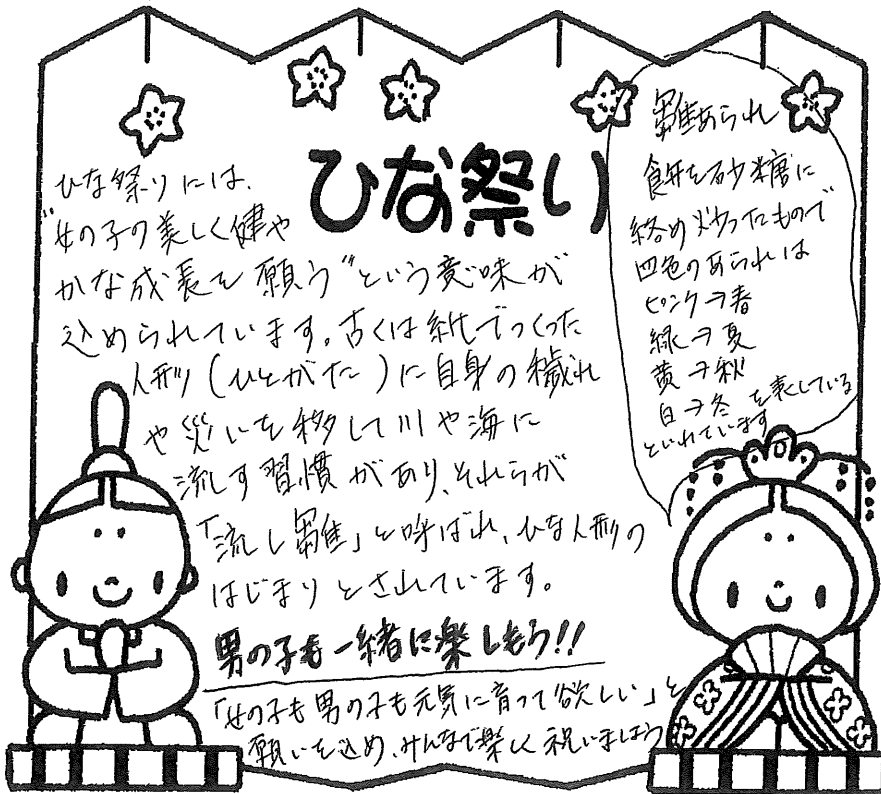 ひな祭り
ひな祭りには、
"女の子の美しく健や
かな成長を願う"という意味が
込められています。古くは紙でつくった
人形(ひとがた)に自身の穢れ
や災いを移して川や海に
流す習慣があり、それらが
「流し雛」と呼ばれ、ひな人形の
はじまりとされています。
男の子も一緒に楽しもう!!
「女の子も男の子も元気に育って欲しい」と
願いを込め、みんなで楽しく祝いましょう
雛あられ
餅を砂糖に
絡め炒ったもので
四色のあられは
ピンク→春
緑→夏
黄→秋
白→冬 を表している
といれています